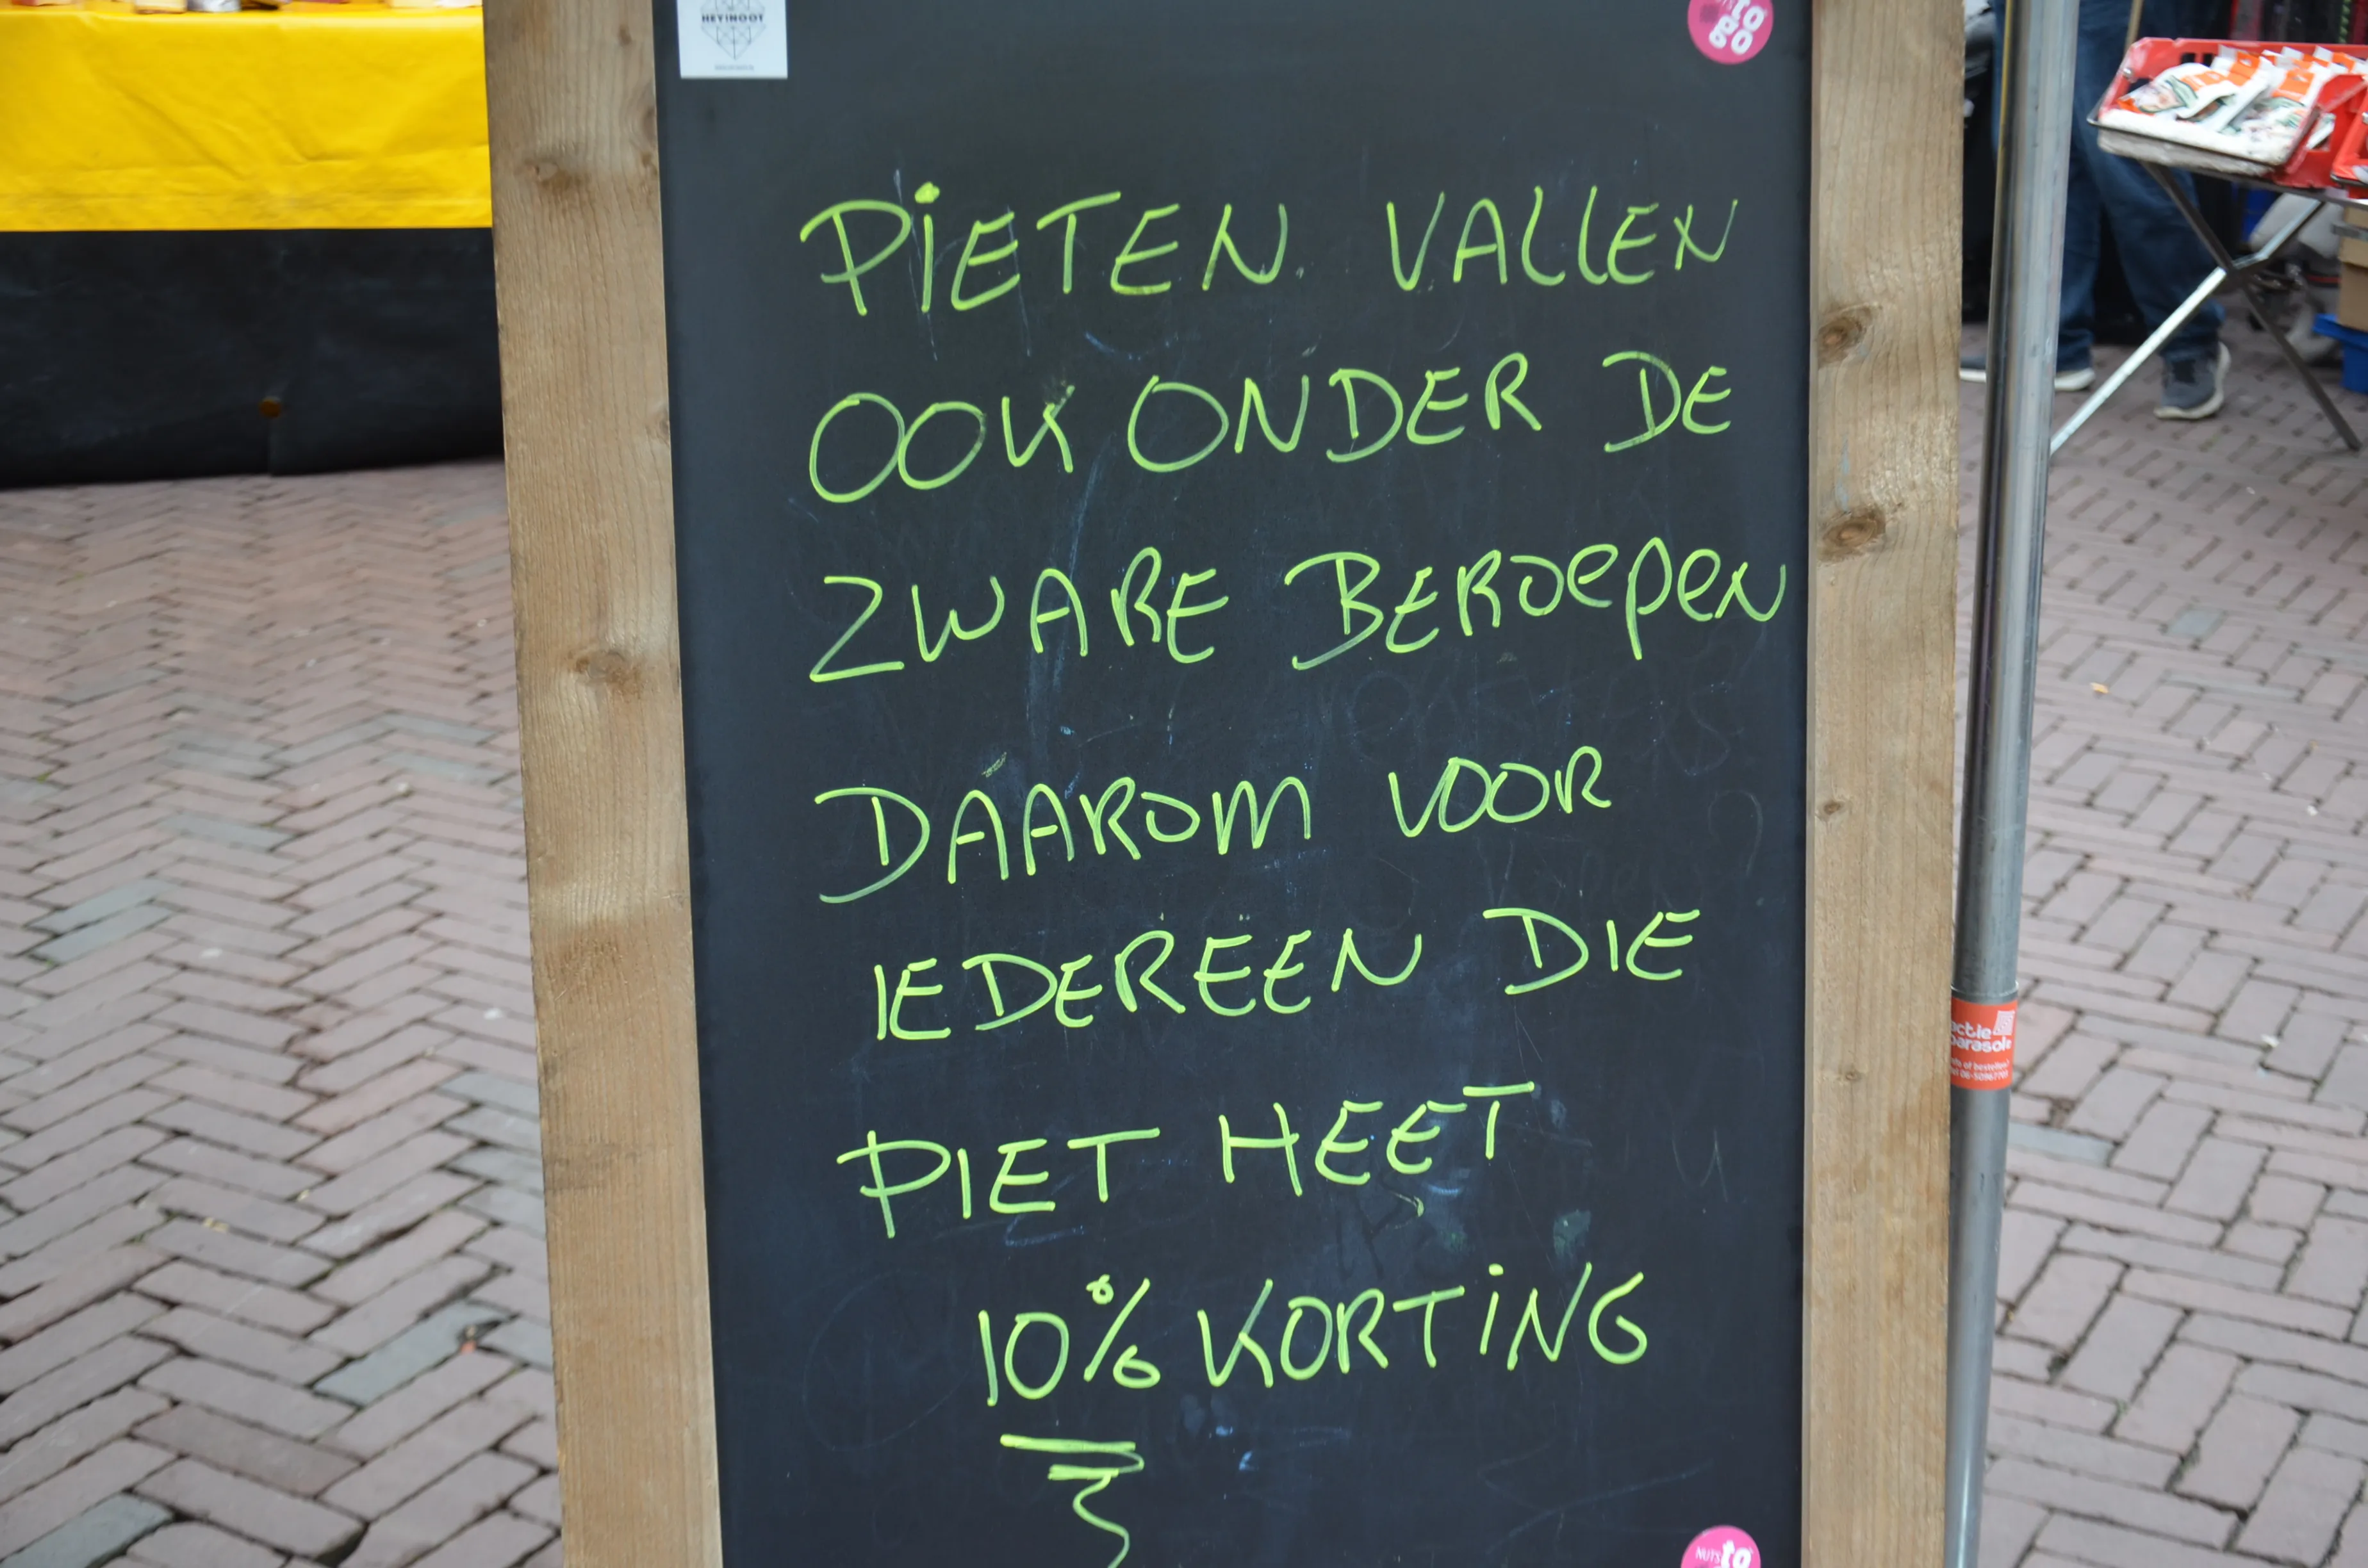 HEY!NOOT
to
go
PIETEN VALLEN
OOK ONDER DE
ZWARE BEROEPEN
DAAROM VOOR
IEDEREEN DIE
PIET HEET
10% KORTING
actie
parasols
NUTS to